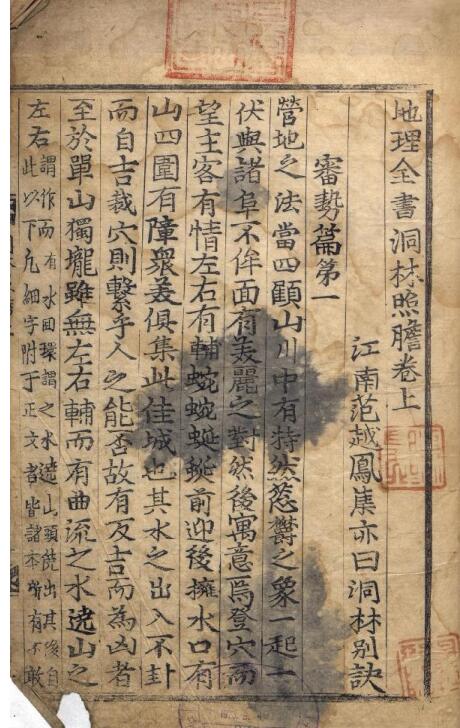 地理全書洞林照膽卷上
江南范越鳳集亦曰洞林別訣
審勢篇第一
營地之法當四顧山川中有特然蔥鬱之象一起一
伏與諸阜不侔面有美麗之對然後寓意焉登穴而
望主客有情左右有輔蜿蜿蜒蜒前迎後擁水口有
山四圍有障衆美俱集此佳城也其水之出入不卦
而自吉裁穴則繫乎人之能否故有反吉而為凶者
至於單山獨壠雖無左右輔而有曲流之水遶山之
左右謂作而有水回環謂之水遶山頭饒出其後自
此以下凡細字附于正文者皆諸本所有不敢